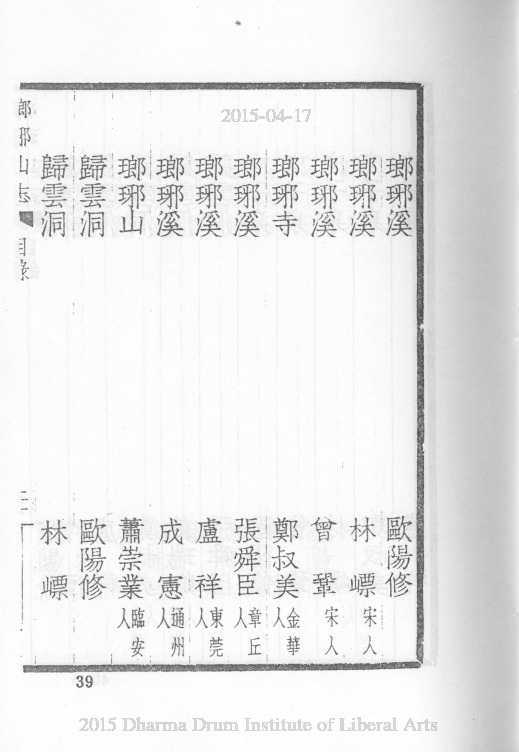 2015-04-17
瑯琊溪 歐陽修
瑯琊溪 林嶛 宋人
瑯琊溪 曾鞏 宋人
瑯琊寺 鄭叔美 金華人
瑯琊溪 張舜臣 章丘人
瑯琊溪 盧祥 東莞人
瑯琊溪 成憲 通州人
瑯琊山 蕭崇業 臨安人
歸雲洞 歐陽修
歸雲洞 林嶛
瑯琊山志 目錄
39
2015 Dharma Drum Institute of Liberal Arts